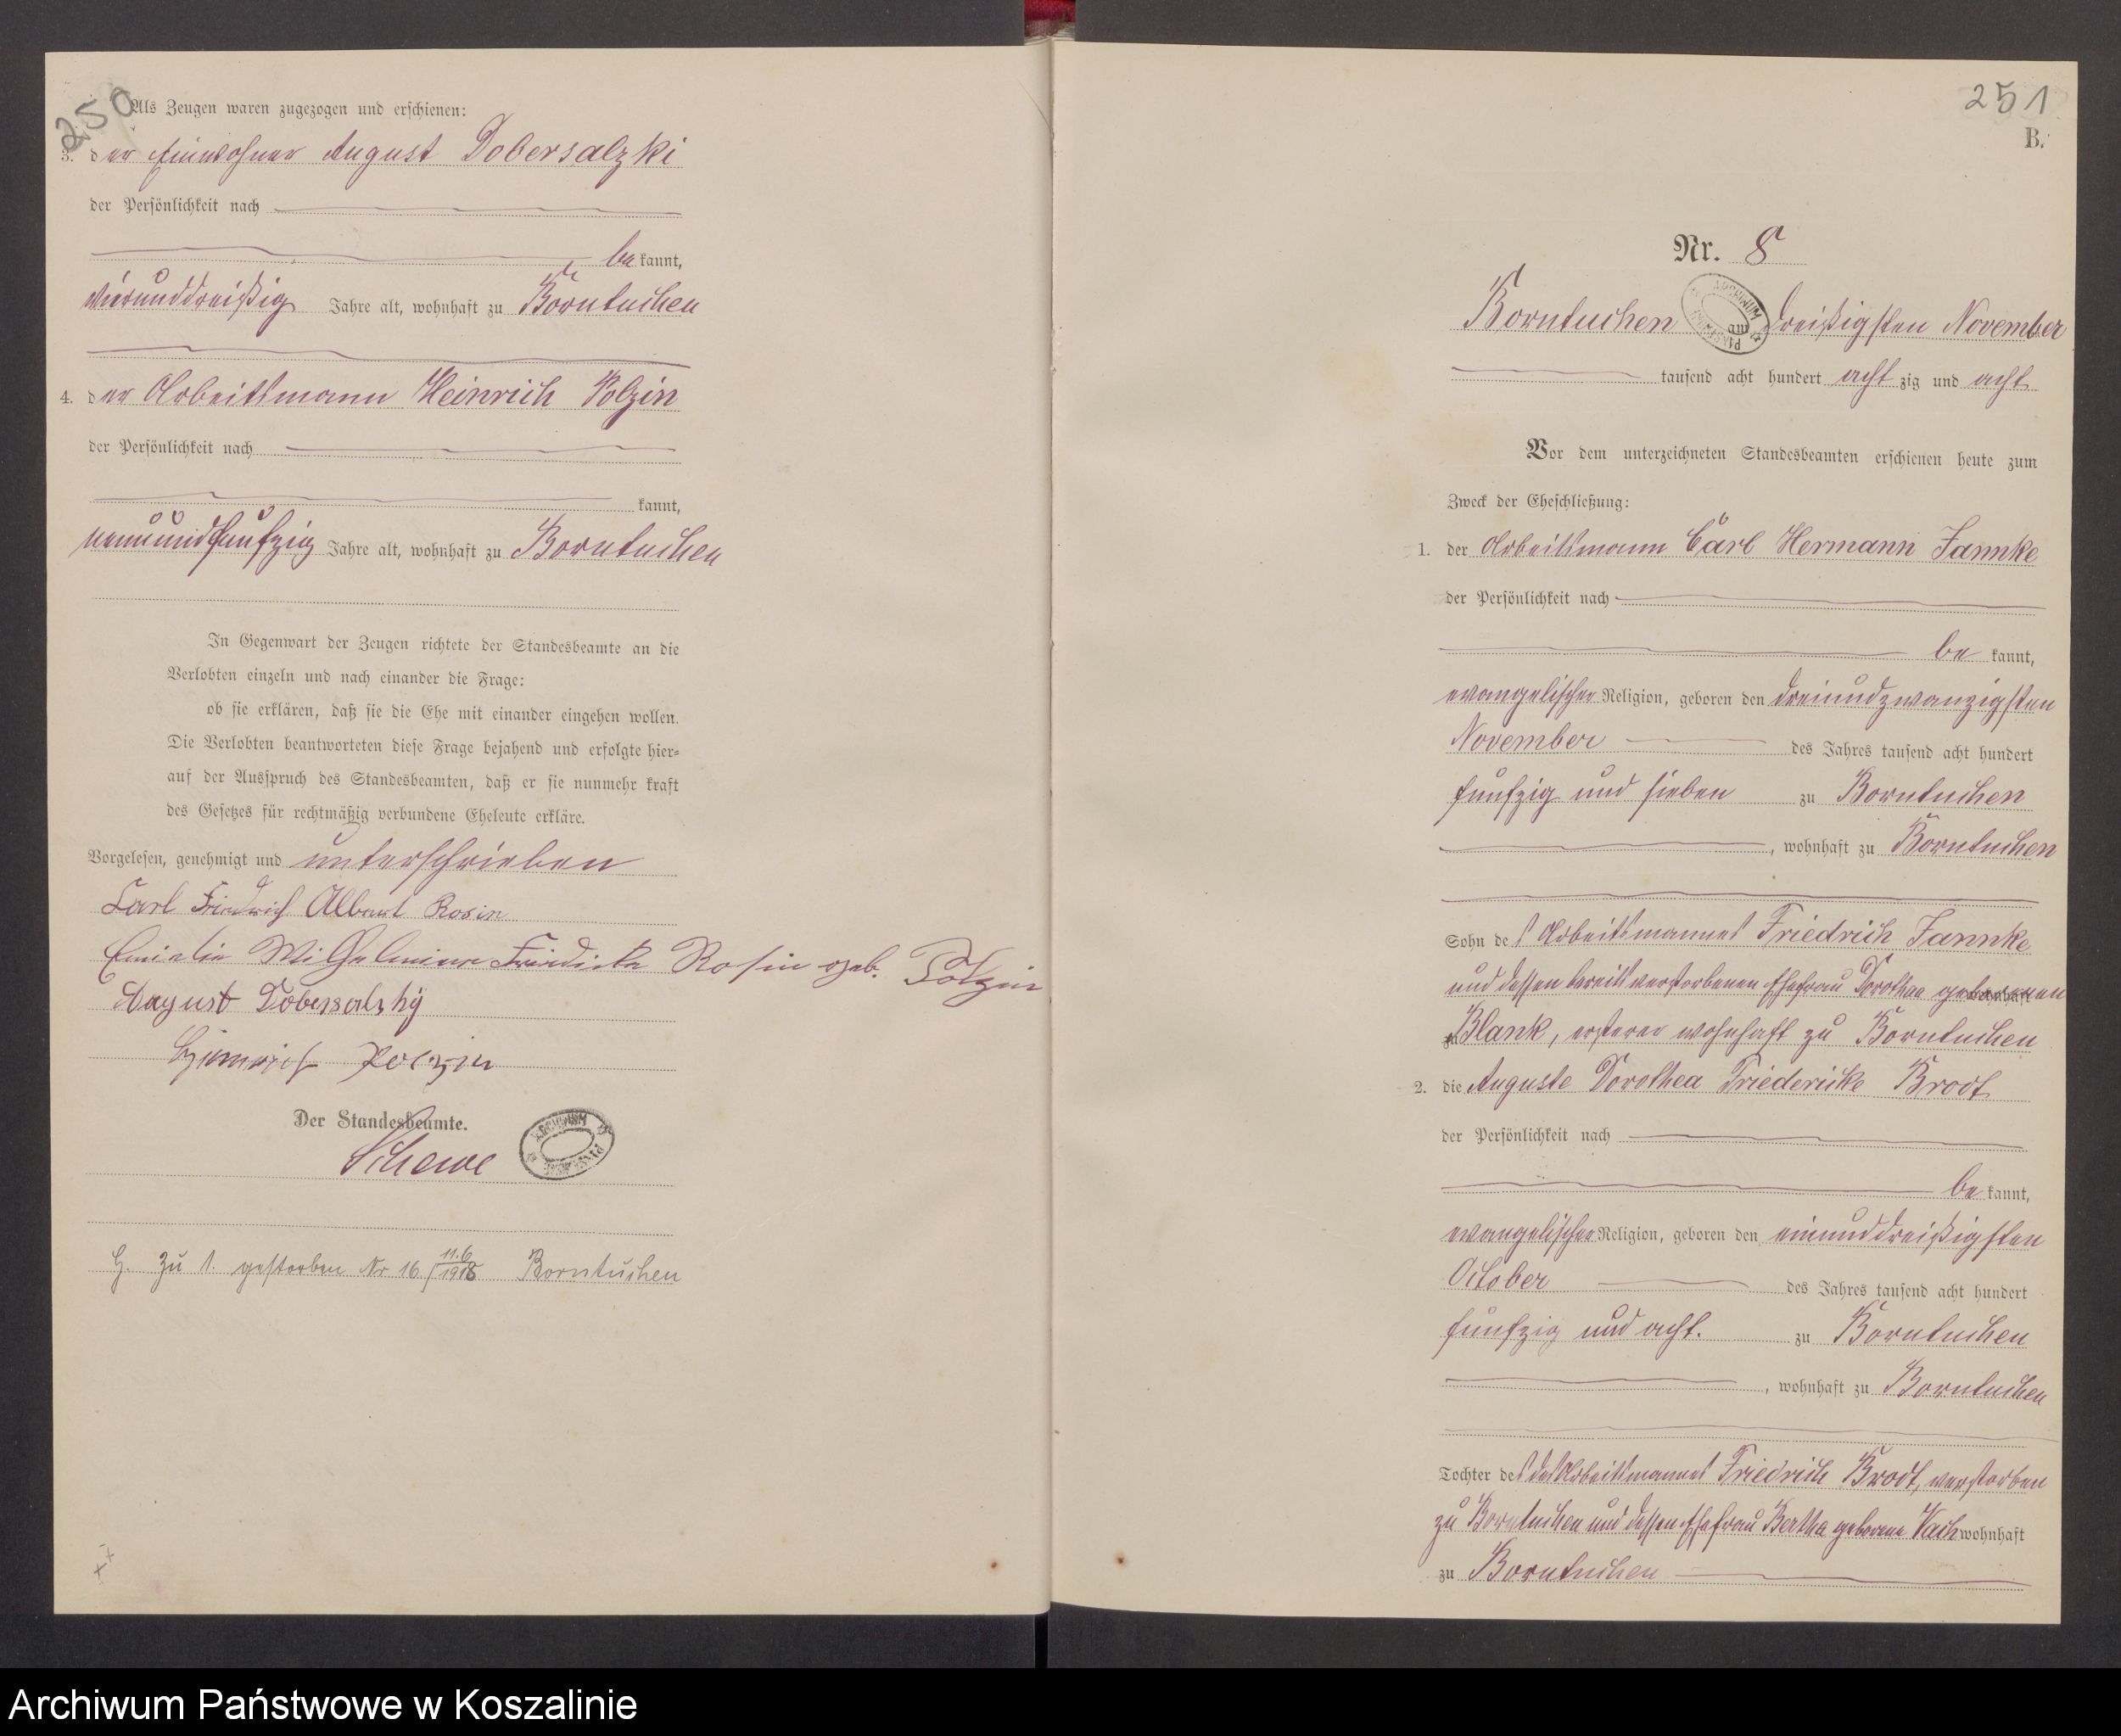 250
Als Zeugen waren zugezogen und erschienen:
3. der Einwohner August Dobersalzki
der Persönlichkeit nach
be kannt,
vierunddreißig Jahre alt, wohnhaft zu Borntuchen
4. der Arbeitsmann Heinrich Polzin
der Persönlichkeit nach
kannt,
neunundfunfzig Jahre alt, wohnhaft zu Borntuchen
In Gegenwart der Zeugen richtete der Standesbeamte an die
Verlobten einzeln und nach einander die Frage:
ob sie erklären, daß sie die Ehe mit einander eingehen wollen.
Die Verlobten beantworteten diese Frage bejahend und erfolgte hier-
auf der Ausspruch des Standesbeamten, daß er sie nunmehr kraft
des Gesetzes für rechtmäßig verbundene Eheleute erkläre.
Vorgelesen, genehmigt und unterschrieben
Carl Friedrich Albert Rosin
Emielie Wilhelmine Friedicke Rosin geb. Polzin
August Dobersalzky
Heinrich Polzin
Der Standesbeamte.
Schewe
ARCHIWUM
H. zu 1. gestorben Nr 16/11.6 1918 Borntuchen
251
B.
Nr. 8
Borntuchen am dreißigsten November
tausend acht hundert acht zig und acht
Vor dem unterzeichneten Standesbeamten erschienen heute zum
Zweck der Eheschließung:
1. der Arbeitsmann Carl Hermann Jannke
der Persönlichkeit nach
be kannt,
evangelischer Religion, geboren den dreiundzwanzigsten
November des Jahres tausend acht hundert
funfzig und sieben zu Borntuchen
, wohnhaft zu Borntuchen
Sohn des Arbeitsmannes Friedrich Jannke
und dessen bereits verstorbenen Ehefrau Dorothea geborenen wohnhaft
zu Blank, ersterer wohnhaft zu Borntuchen
2. die Auguste Dorothea Friedericke Brodt
der Persönlichkeit nach
be kannt,
evangelischer Religion, geboren den einunddreißigsten
October des Jahres tausend acht hundert
funfzig und acht. zu Borntuchen
, wohnhaft zu Borntuchen
Tochter des des Arbeitsmannes Friedrich Brodt, verstorben
zu Borntuchen und dessen Ehefrau Bertha geborene Vach wohnhaft
zu Borntuchen
Archiwum Państwowe w Koszalinie